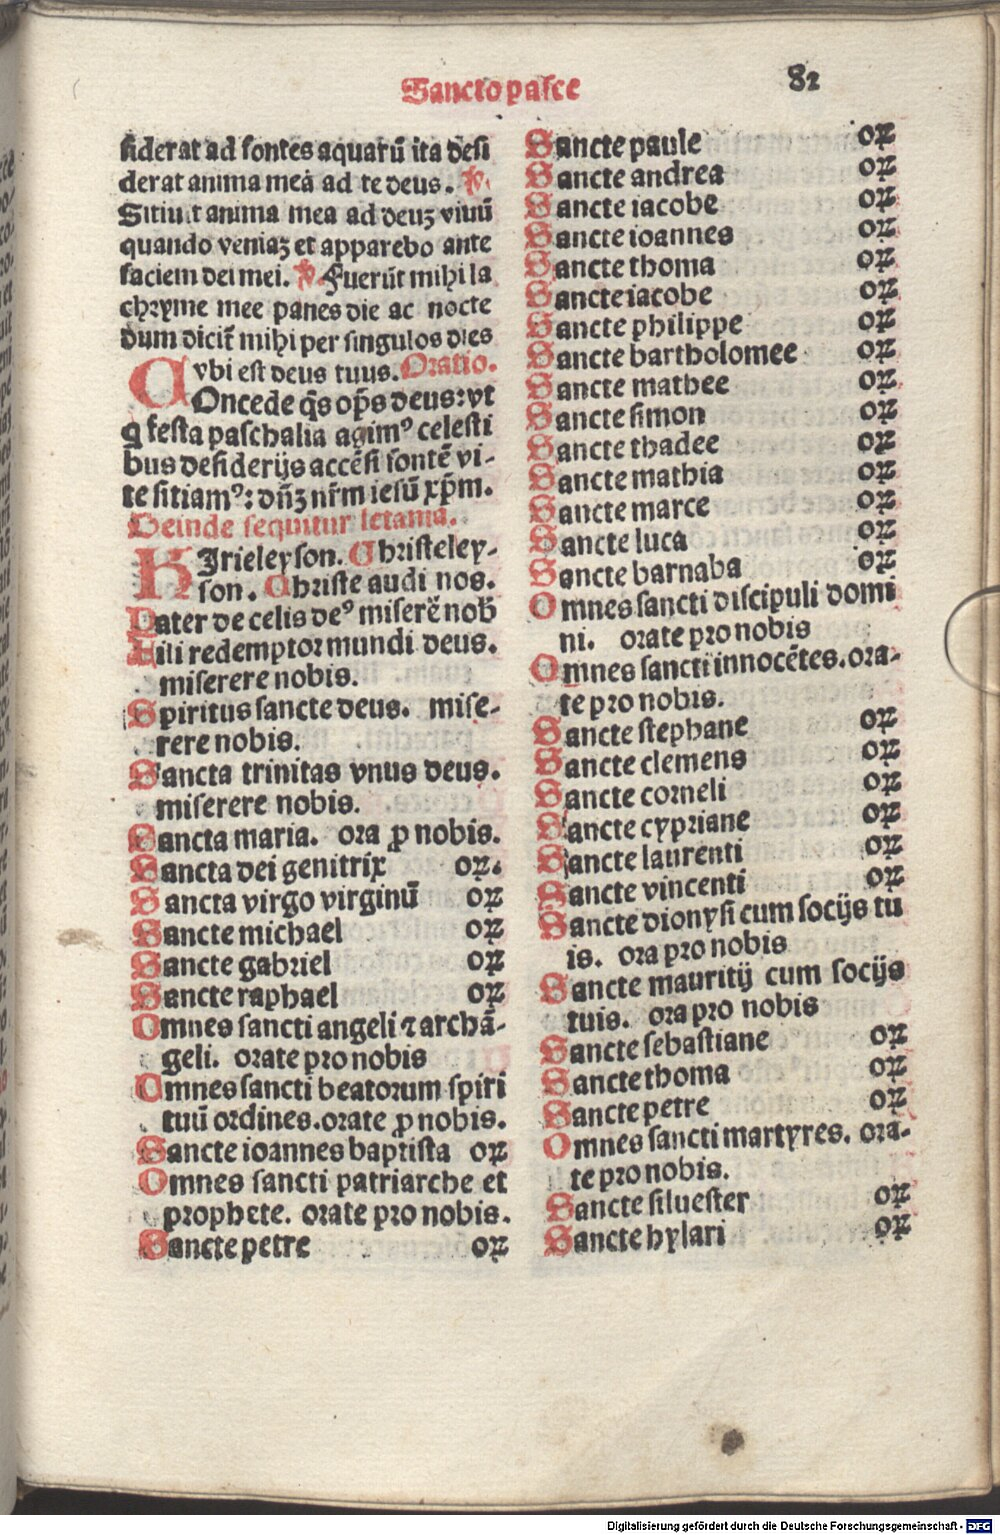 Sancto pasce 82
siderat ad fontes aquarũ ita desi
derat anima mea ad te deus. ℣.
Sitiuit anima mea ad deuꝫ viuũ
quando veniaꝫ et apparebo ante
faciem dei mei. ℣. Fuerũt mihi la
chryme mee panes die ac nocte
dum diciť mihi per singulos dies
vbi est deus tuus. Oratio.
COncede q̃s op̃s deus: vt
q festa paschalia agimꝰ celesti
bus desiderijs accẽsi fontẽ vi-
te sitiamꝰ: dñꝫ nr̃m iesũ xp̃m.
Deinde sequitur letania.
KIrieleyson. Christeley-
son. Christe audi nos.
Pater de celis deꝰ miserẽ nob̃
Fili redemptor mundi deus.
miserere nobis.
Spiritus sancte deus. mise-
rere nobis.
Sancta trinitas vnus deus.
miserere nobis.
Sancta maria. ora ꝓ nobis.
Sancta dei genitrix oꝝ.
Sancta virgo virginũ oꝝ
Sancte michael oꝝ
Sancte gabriel oꝝ
Sancte raphael oꝝ
Omnes sancti angeli ⁊ archã-
geli. orate pro nobis
Omnes sancti beatorum spiri
tuũ ordines. orate ꝓ nobis.
Sancte ioannes baptista oꝝ
Omnes sancti patriarche et
prophete. orate pro nobis.
Sancte petre oꝝ
Sancte paule oꝝ
Sancte andrea oꝝ
Sancte iacobe oꝝ
Sancte ioannes oꝝ
Sancte thoma oꝝ
Sancte iacobe oꝝ
Sancte philippe oꝝ
Sancte bartholomee oꝝ
Sancte mathee oꝝ
Sancte simon oꝝ
Sancte thadee oꝝ
Sancte mathia oꝝ
Sancte marce oꝝ
Sancte luca oꝝ
Sancte barnaba oꝝ
Omnes sancti discipuli domi
ni. orate pro nobis
Omnes sancti innocẽtes. ora-
te pro nobis.
Sancte stephane oꝝ
Sancte clemens oꝝ
Sancte corneli oꝝ
Sancte cypriane oꝝ
Sancte laurenti oꝝ
Sancte vincenti oꝝ
Sancte dionysi cum socijs tu
is. ora pro nobis
Sancte mauritij cum socijs
tuis. ora pro nobis
Sancte sebastiane oꝝ
Sancte thoma oꝝ
Sancte petre oꝝ
Omnes sancti martyres. ora-
te pro nobis.
Sancte siluester oꝝ
Sancte hylari oꝝ
Digitalisierung gefördert durch die Deutsche Forschungsgemeinschaft - DFG